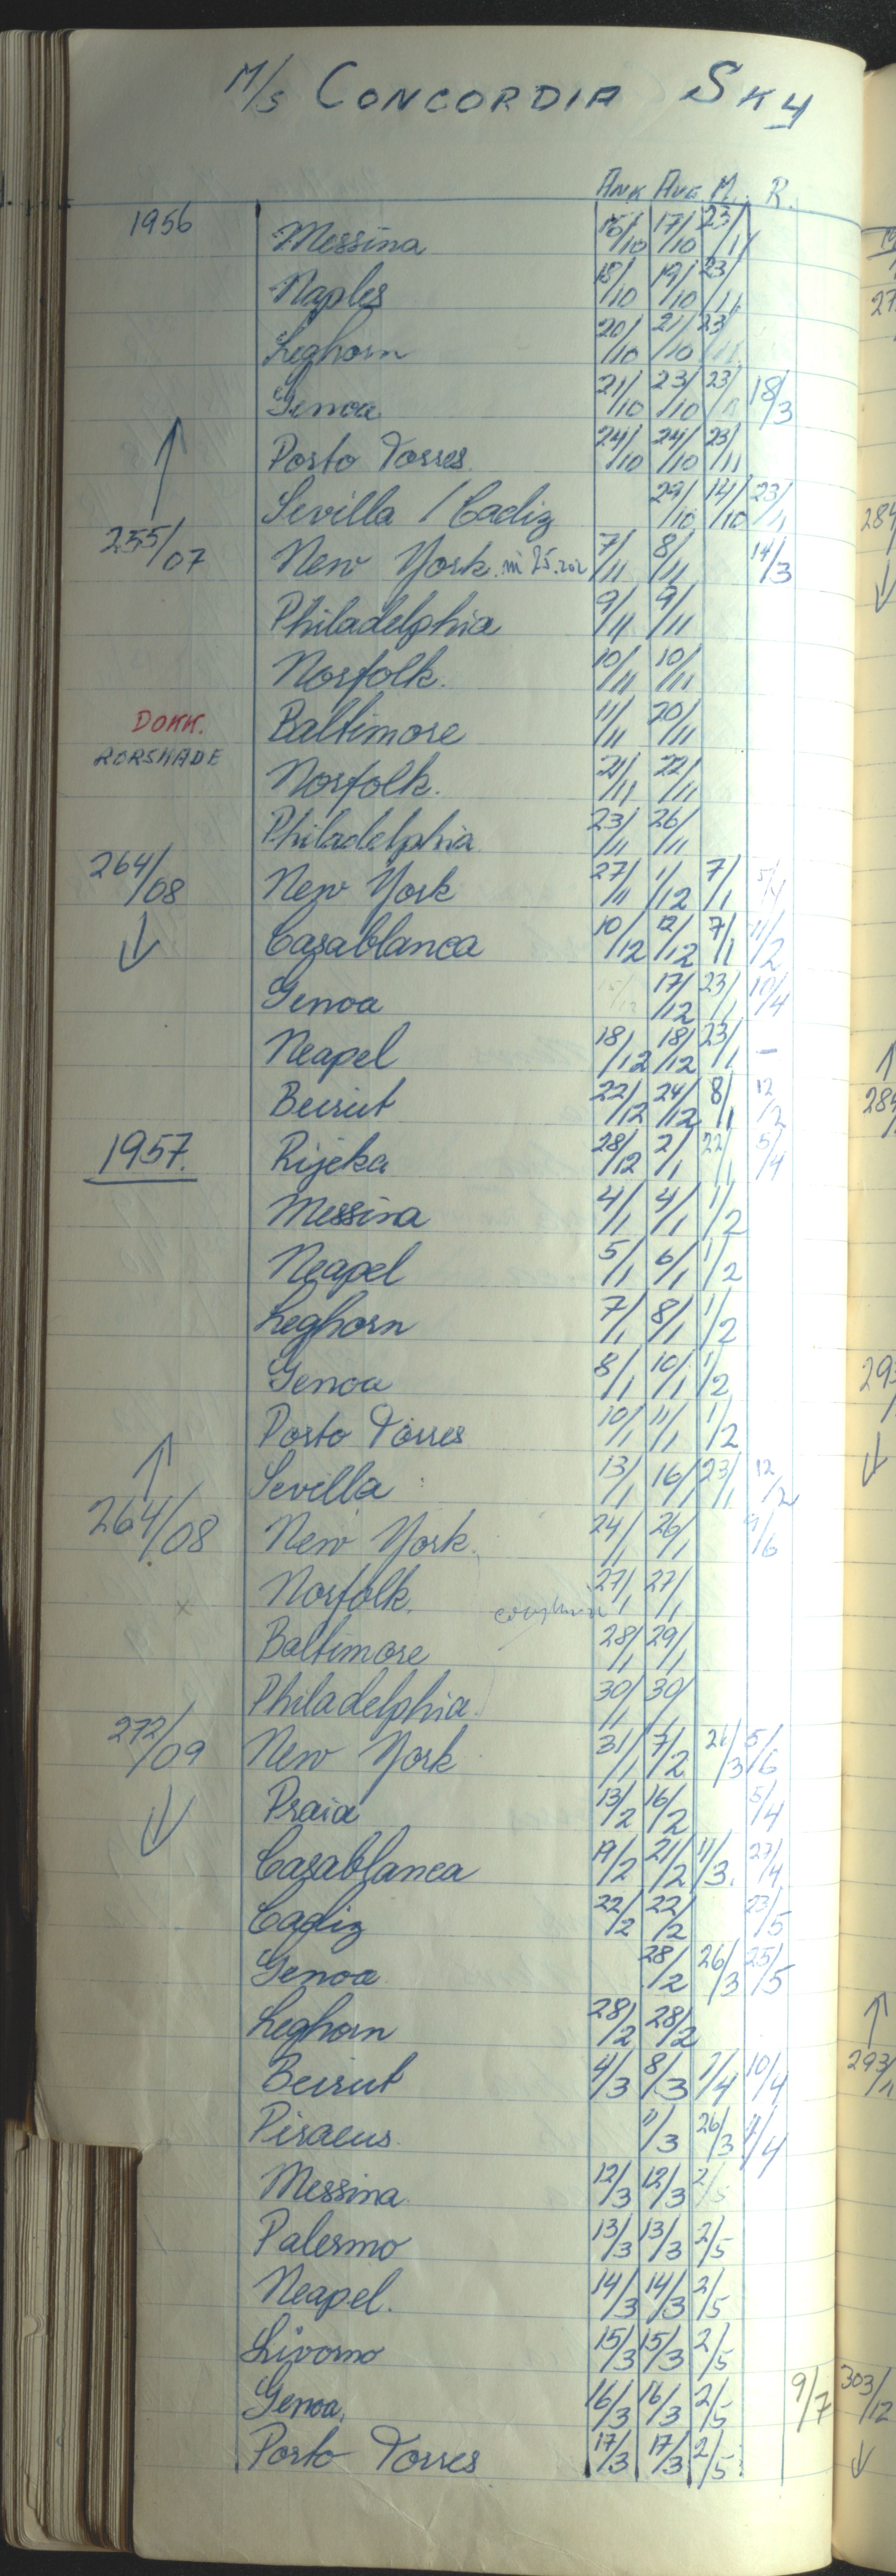 M/S CONCORDIA SKY
ANK AVG M. R.
1956 Messina 16/10 17/10 23/11
Naples 18/10 19/10 23/11
Leghorn 20/10 21/10 23/11
Genoa 21/10 23/10 23/11 18/3
Porto Torres 24/10 24/10 23/11
Sevilla / Cadiz 29/10 14/10 23/1
255/07 New York 7/11 8/11 14/3
Philadelphia 9/11 9/11
Norfolk. 10/11 10/11
DOKK. Baltimore 11/11 20/11
RORSKADE
Norfolk. 21/11 22/11
Philadelphia 23/11 26/11
264/08 New York 27/11 1/12 7/1 5/4
Casablanca 10/12 12/12 7/1 11/2
Genoa 17/12 23/1 10/4
Neapel 18/12 18/12 23/1 –
Beirut 22/12 24/12 8/1 12/2
1957. Rijeka 28/12 2/1 22/1 5/4
Messina 4/1 4/1 1/2
Neapel 5/1 6/1 1/2
Leghorn 7/1 8/1 1/2
Genoa 8/1 10/1 1/2
Porto Torres 10/1 11/1 1/2
Sevilla 13/1 16/1 23/1 12/2
264/08 New York. 24/1 26/1 9/6
Norfolk. 27/1 27/1
Baltimore 28/1 29/1
Philadelphia. 30/1 30/1
272/09 New York 31/1 7/2 26/3 5/6
Praia 13/2 16/2 5/4
Casablanca 19/2 21/2 11/3. 27/4
Cadiz 22/2 22/2 23/5
Genoa 28/2 26/3 25/5
Leghorn 28/2 28/2
Beirut 4/3 8/3 1/4 10/4
Piraeus. 11/3 26/3 11/4
Messina 12/3 12/3 2/5
Palermo 13/3 13/3 2/5
Neapel. 14/3 14/3 2/5
Livorno 15/3 15/3 2/5
Genoa. 16/3 16/3 2/5 9/7
Porto Torres 17/3 17/3 2/5
303/12